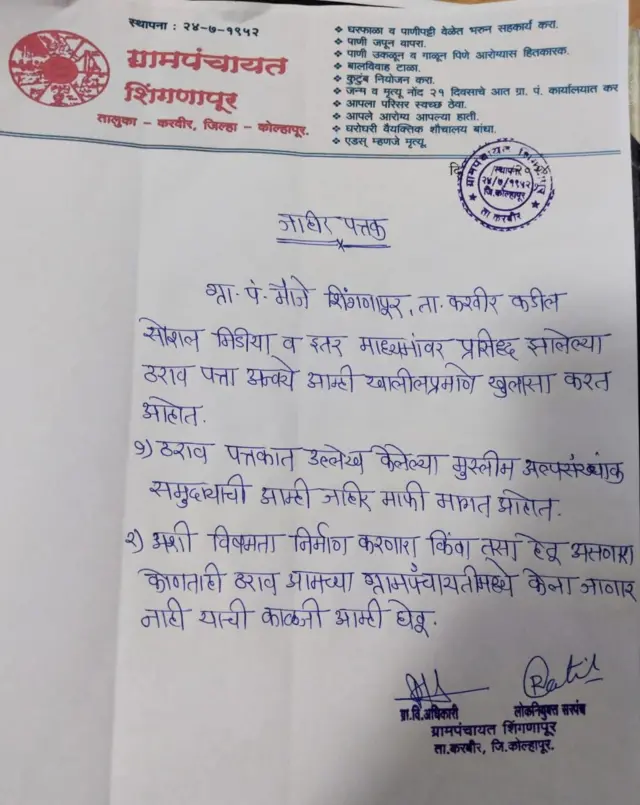 स्थापना : २४-७-१९५२
ग्रामपंचायत
शिंगणापूर
तालुका - करवीर, जिल्हा - कोल्हापूर.
❖ घरफाळा व पाणीपट्टी वेळेत भरुन सहकार्य करा.
❖ पाणी जपून वापरा.
❖ पाणी उकळून व गाळून पिणे आरोग्यास हितकारक.
❖ बालविवाह टाळा.
❖ कुटुंब नियोजन करा.
❖ जन्म व मृत्यू नोंद २१ दिवसाचे आत ग्रा. पं. कार्यालयात कर
❖ आपला परिसर स्वच्छ ठेवा.
❖ आपले आरोग्य आपल्या हाती.
❖ घरोघरी वैयक्तिक शौचालय बांधा.
❖ एडस् म्हणजे मृत्यू.
ग्रामपंचायत शिंगणापूर
स्थापना
२४/७/१९५२
जि.कोल्हापूर
ता. करबीर
जाहीर पत्तक
ग्रा. पं. मौजे शिंगणापूर, ता. करवीर कडील
सोशल मिडीया व इतर माध्यमांवर प्रसिध्द झालेल्या
ठराव पत्ता अन्वये आम्ही खालीलप्रमाणे खुलासा करत
आहोत.
१) ठराव पत्तकात उल्लेख केलेल्या मुस्लीम अल्पसंख्यांक
समुदायाची आम्ही जाहिर माफी मागत आहोत.
२) अशी विषमता निर्माण करणारा किंवा तसा हेतू असणारा
कोणताही ठराव आमच्या ग्रामपंचायतीमध्ये केला जाणार
नाही याची काळजी आम्ही घेवू.
ग्रा.वि.अधिकारी लोकनियुक्त सरपंच
ग्रामपंचायत शिंगणापूर
ता.करबीर, जि.कोल्हापूर.